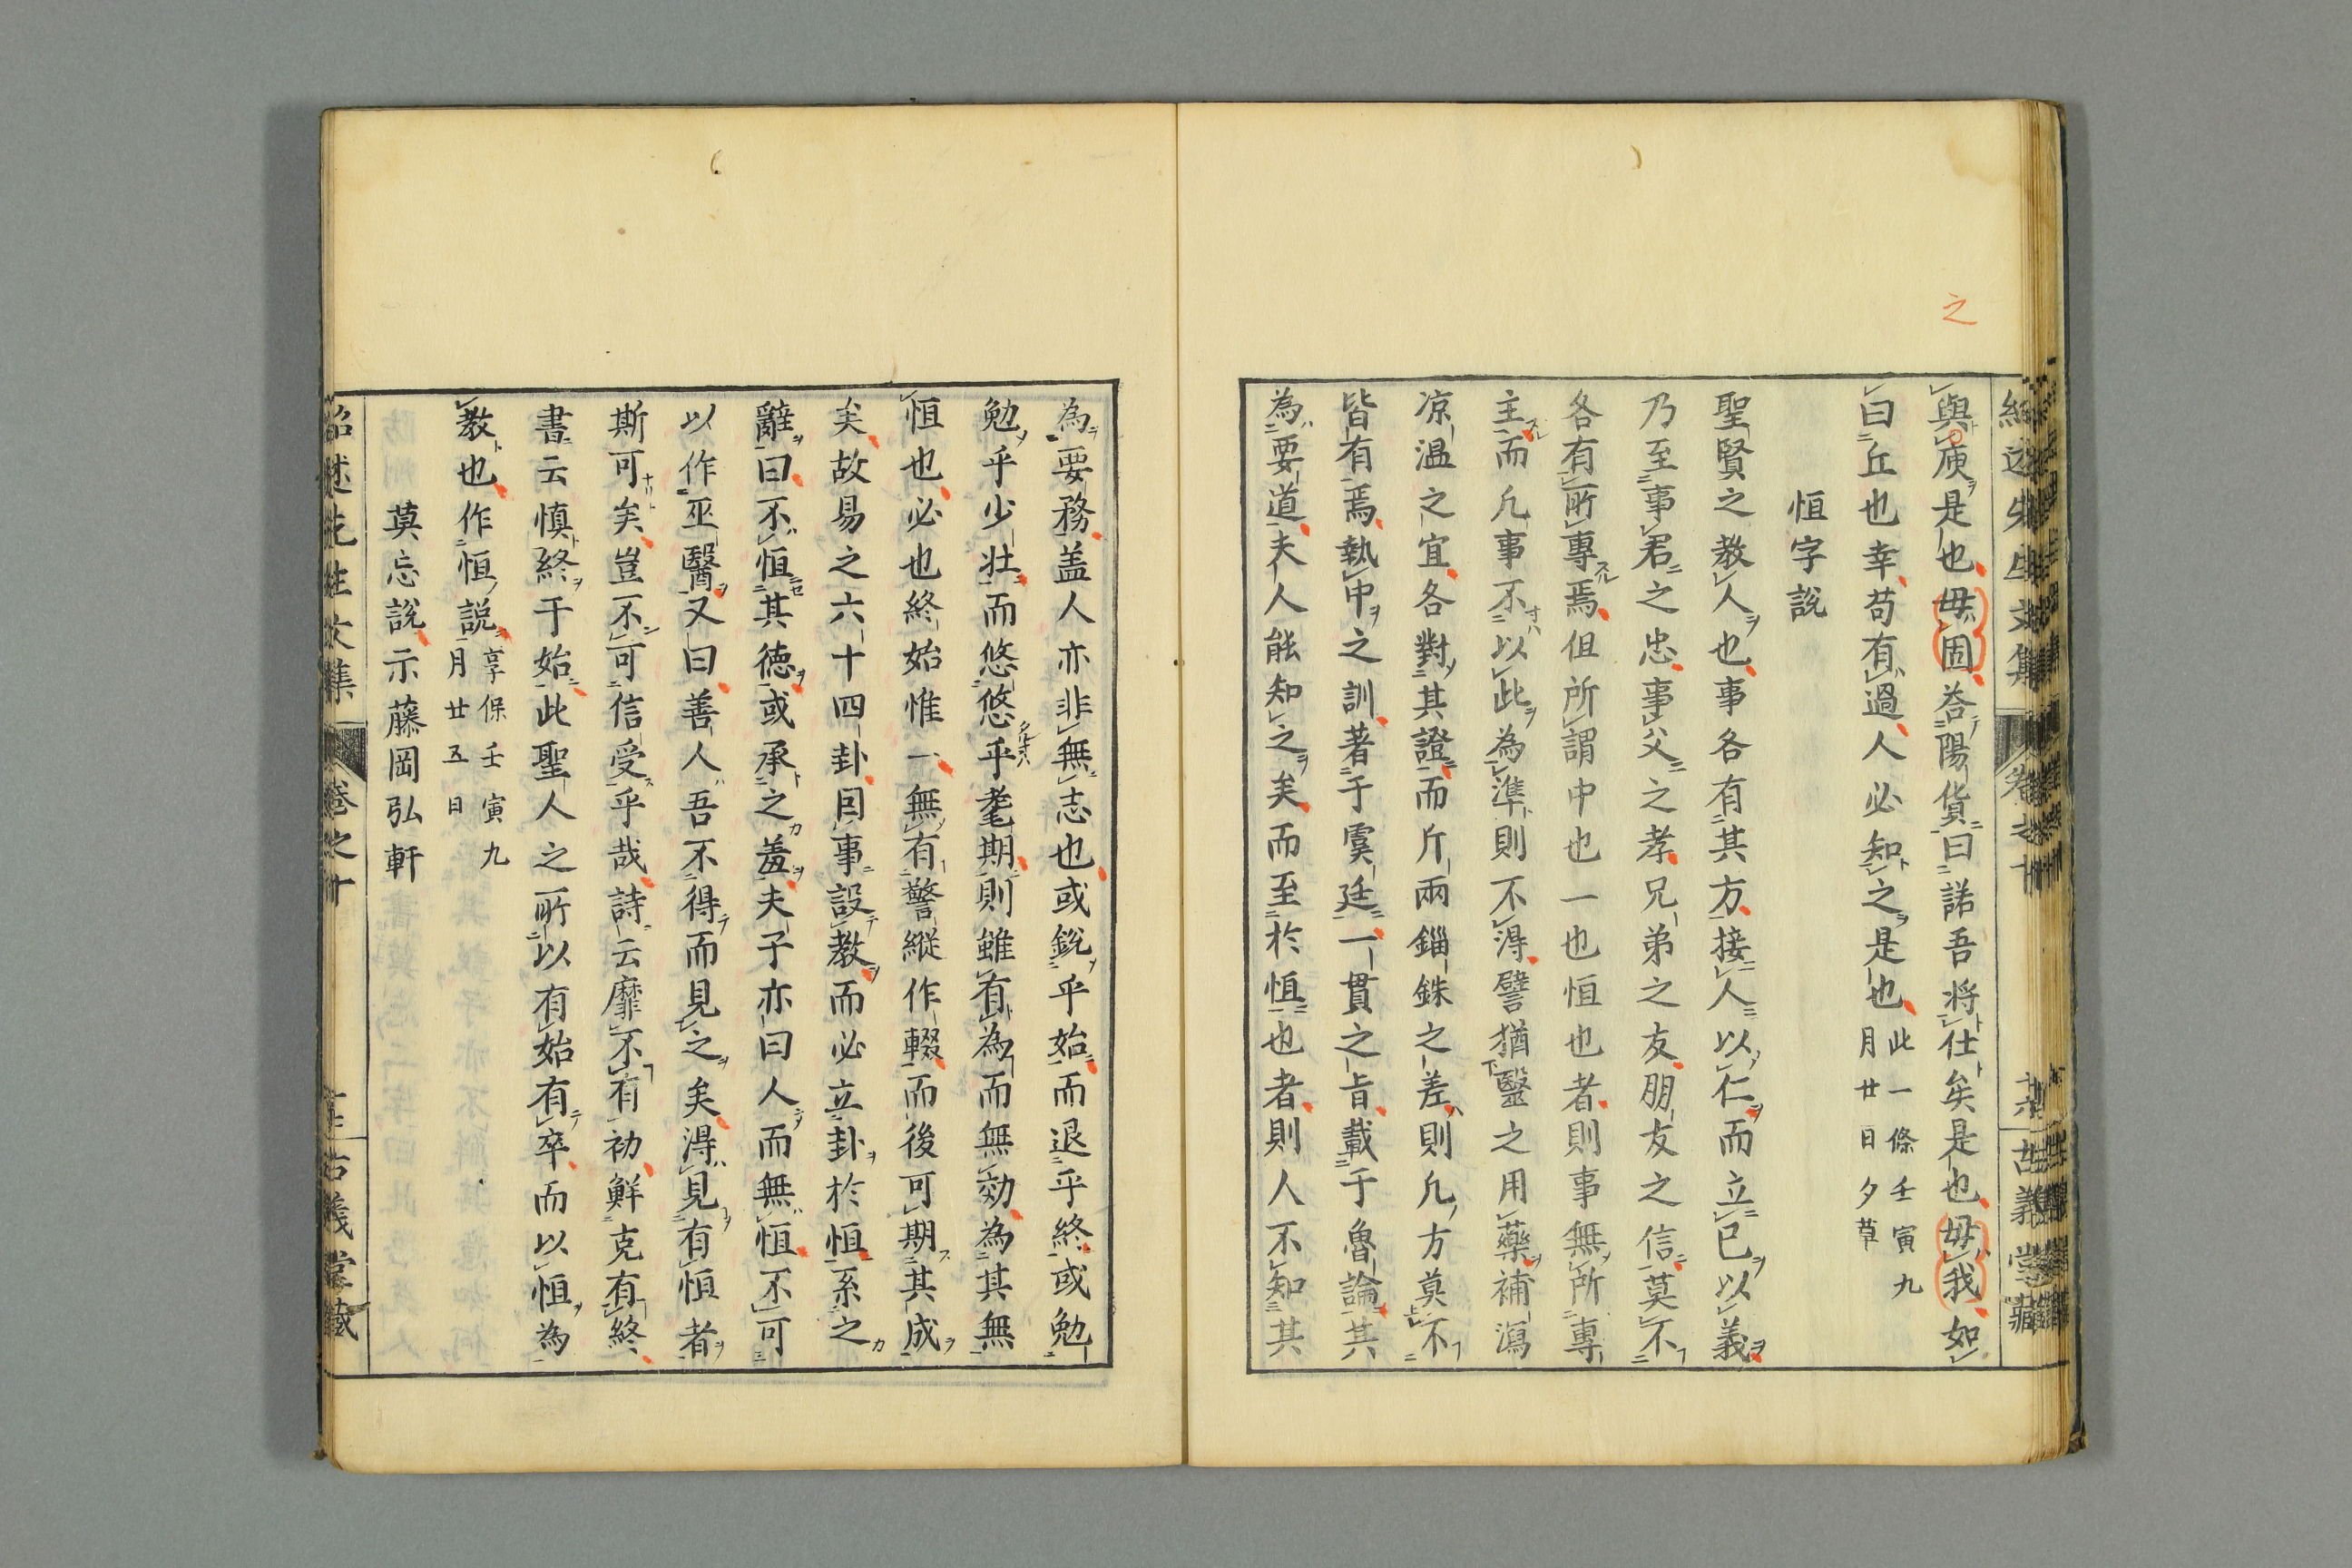 之
與庾是也毋固荅陽貨曰諾吾将仕矣是也毋我如
曰丘也幸苟有過人必知之是也此一條壬寅九
月廿日夕草
恒字說
聖賢之教人也事各有其方接人以仁而立已以義
乃至事君之忠事父之孝兄弟之友朋友之信莫不
各有所專焉但所謂中也一也恒也者則事無所專
主而凢事不以此為準則不淂譬猶醫之用藥補瀉
凉温之宜各對其證而斤兩錙銖之差則凢方莫不
皆有焉執中之訓著于虞廷一貫之旨載于魯論其
為要道夫人能知之矣而至於恒也者則人不知其
為要務盖人亦非無志也或銳乎始而退乎終或勉
勉乎少壮而悠悠乎耄期則雖有為而無効為其無
恒也必也終始惟一無有警縱作輟而後可期其成
矣故易之六十四卦因事設教而必立卦於恒系之
辭曰不恒其德或承之羞夫子亦曰人而無恒不可
以作巫醫又曰善人吾不得而見之矣淂見有恒者
斯可矣豈不可信受乎哉詩云靡不有初鮮克有終
書云慎終于始此聖人之所以有始有卒而以恒為
教也作恒說享保壬寅九
月廿五日
莫忘說示藤岡弘軒
紹述先生文集 卷之十 十二 古義堂藏